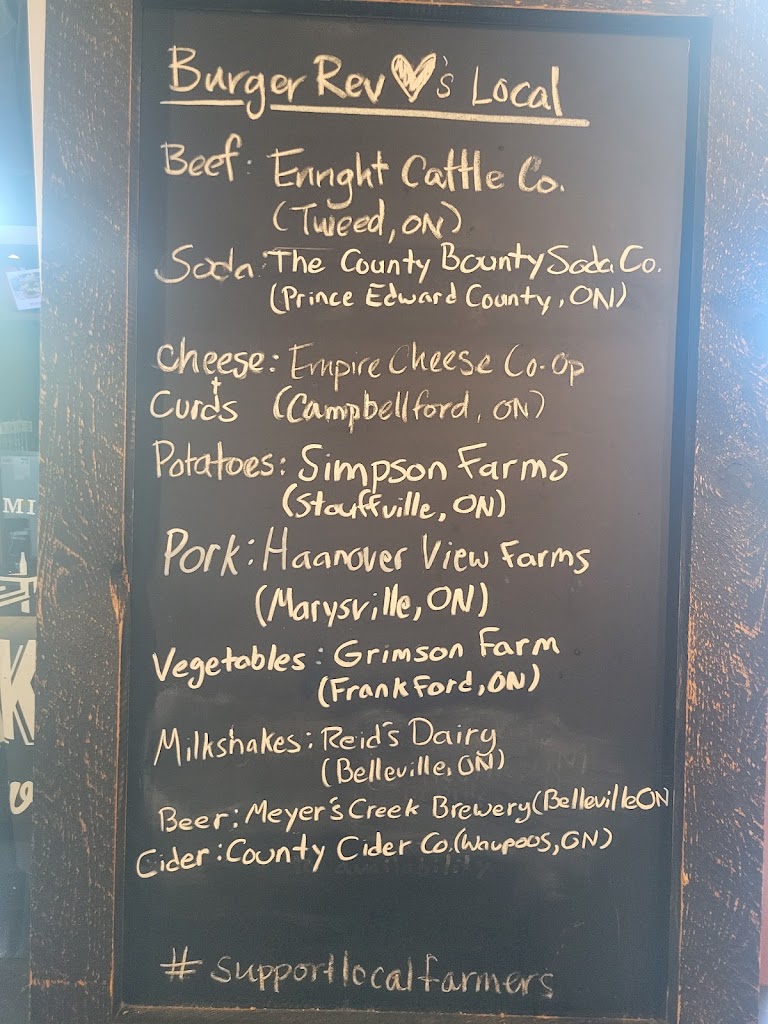 Burger Rev ♥'s Local
Beef: Enright Cattle Co.
(Tweed, ON)
Soda: The County Bounty Soda Co.
(Prince Edward County, ON)
Cheese: Empire Cheese Co-Op
+
Curds (Campbellford, ON)
Potatoes: Simpson Farms
(Stouffville, ON)
Pork: Haanover View Farms
(Marysville, ON)
Vegetables: Grimson Farm
(Frankford, ON)
Milkshakes: Reid's Dairy
(Belleville, ON)
Beer: Meyer's Creek Brewery (Belleville ON
Cider: County Cider Co. (Waupoos, ON)
#supportlocalfarmers
MI
K